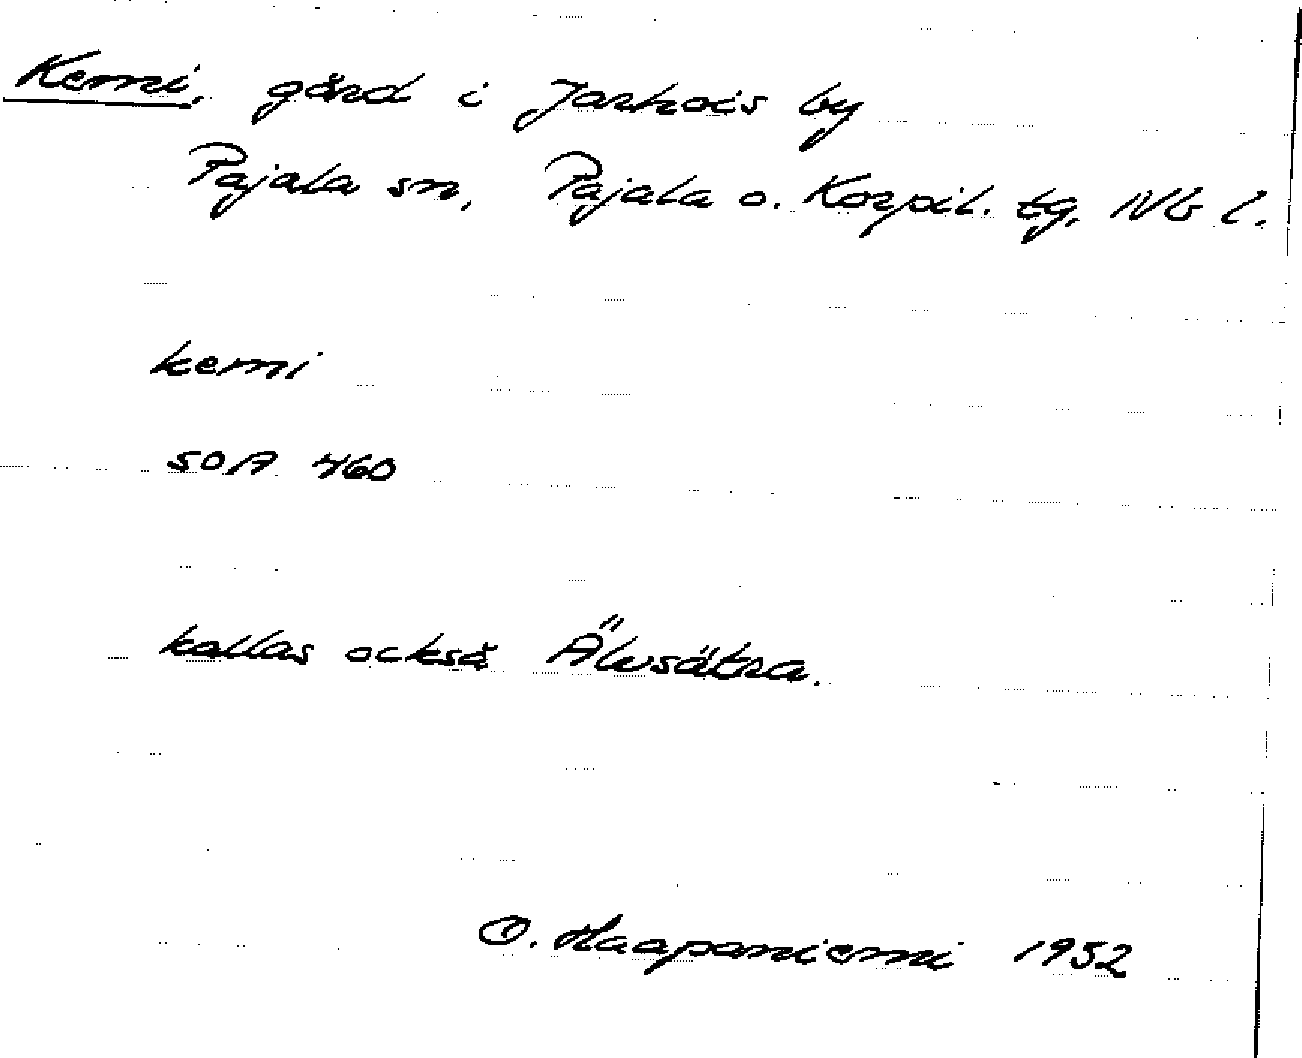 Kemi, gård i Jarhois by
Pajala sn, Pajala o. Korpil. tg, Nb l.
kemi
SOA 460
kallas också Älvsätra.
O. Haapaniemi 1952